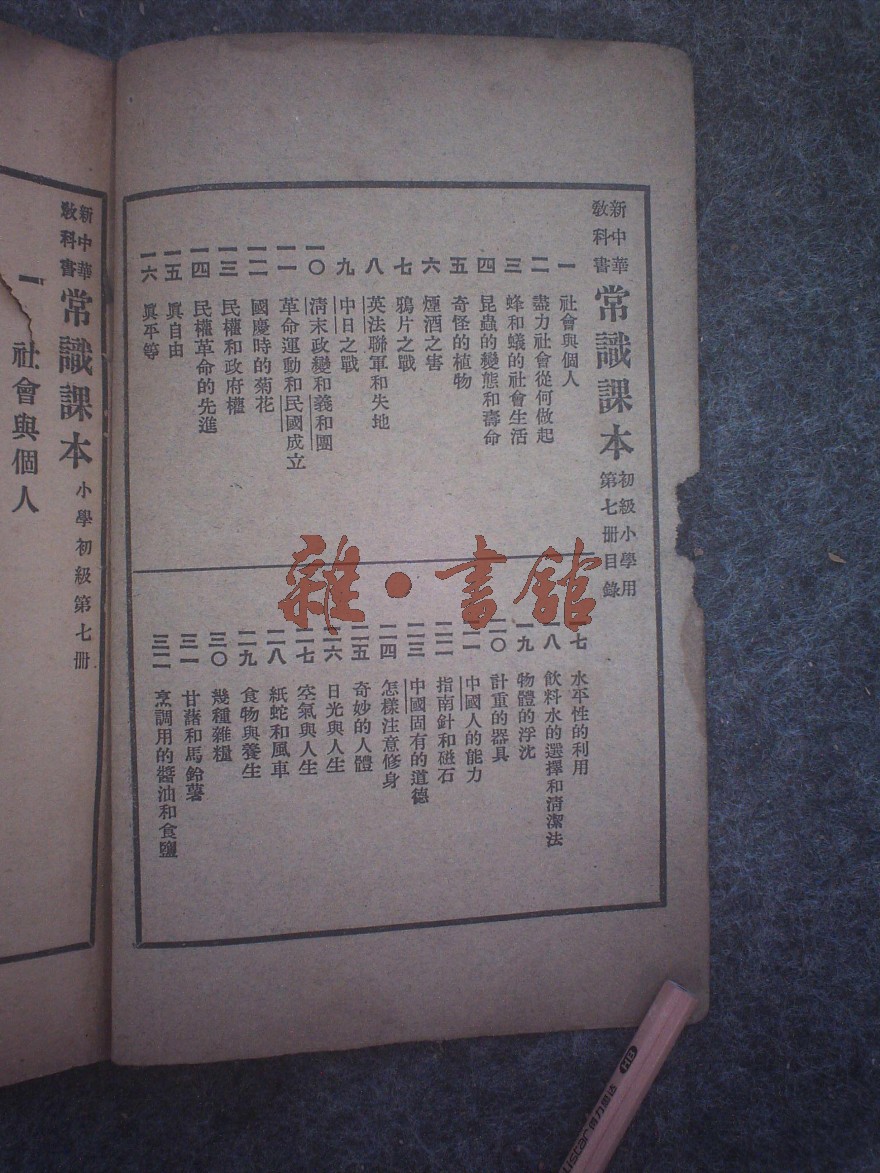 新中華教科書 常識課本 初級小學用 第七冊目錄
一 社會與個人
二 盡力社會從何做起
三 蜂和蟻的社會生活
四 昆蟲的變態和壽命
五 奇怪的植物
六 煙酒之害
七 鴉片之戰
八 英法聯軍和失地
九 中日之戰
一〇 清末政變和義和團
一一 革命運動和民國成立
一二 國慶時的菊花
一三 民權和政府權
一四 民權革命的先進
一五 眞自由
一六 眞平等
一七 水平性的利用
一八 飲料水的選擇和清潔法
一九 物體的浮沈
二〇 計重的器具
二一 中國人的能力
二二 指南針和磁石
二三 中國固有的道德
二四 怎樣注意修身
二五 奇妙的人體
二六 日光與人生
二七 空氣與人生
二八 紙蛇和風車
二九 食物與養生
三〇 幾種雜糧
三一 甘藷和馬鈴薯
三二 烹調用的醬油和食鹽
新中華教科書 常識課本 小學初級第七冊
一 社會與個人
雜·書館
HB